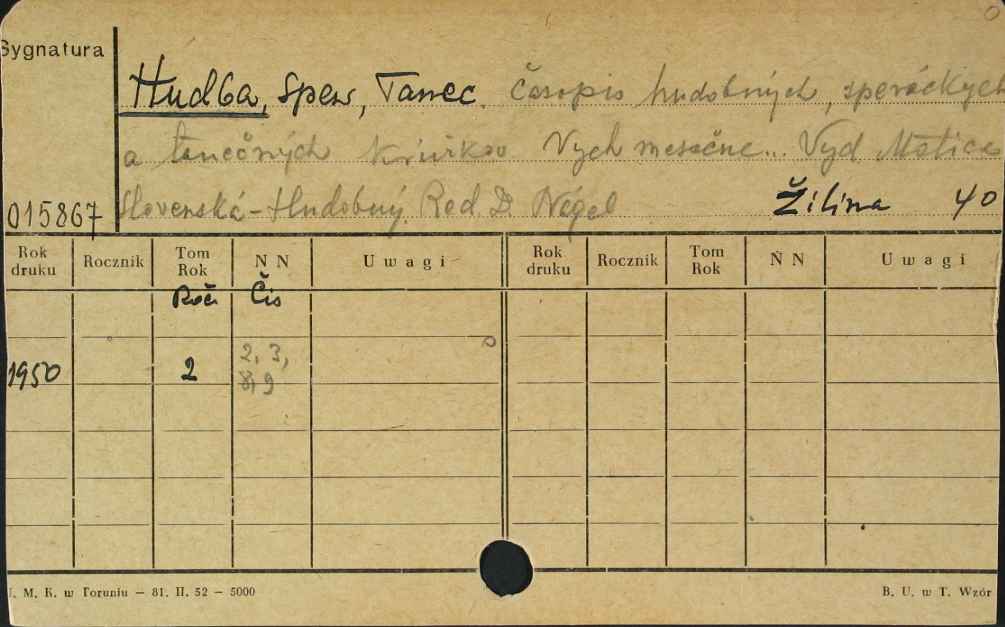 Sygnatura
Hudba, Spev, Tanec. Časopis hudobných, speváckych
a tanečných krúžkov. Vych mesačne.. Vyd Matica
015867 Slovenská - Hudobný. Red. D. Nágel Žilina 40
Rok druku Rocznik Tom Rok N N Uwagi Rok druku Rocznik Tom Rok N N Uwagi
Roč. Čís
1950 2 2, 3,
8, 9
M. K. w Toruniu — 81. II. 52 — 5000 B. U. w T. Wzór